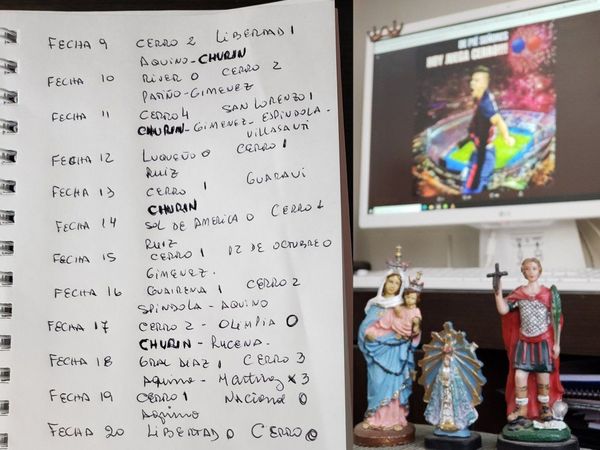 FECHA 9 CERRO 2 LIBERTAD 1
AQUINO-CHURIN
FECHA 10 RIVER 0 CERRO 2
PATIÑO-GIMENEZ
FECHA 11 CERRO 4 SAN LORENZO 1
CHURIN-GIMENEZ-ESPINDOLA-
VILLASANTI
FECHA 12 LUQUEÑO 0 CERRO 1
RUIZ
FECHA 13 CERRO 1 GUARANI
CHURIN
FECHA 14 SOL DE AMERICA 0 CERRO 1
RUIZ
FECHA 15 CERRO 1 12 DE OCTUBRE 0
GIMENEZ.
FECHA 16 GUAIRENA 1 CERRO 2
SPINDOLA-AQUINO
FECHA 17 CERRO 2 - OLIMPIA 0
CHURIN-RUCENA.
FECHA 18 GRAL DIAZ 1 CERRO 3
AQUINO-MARTINEZ x 3
FECHA 19 CERRO 1 NACIONAL 0
AQUINO
FECHA 20 LIBERTAD 0 CERRO 0
DE PIÉ SEÑORES
HOY JUEGA CERRO!!!